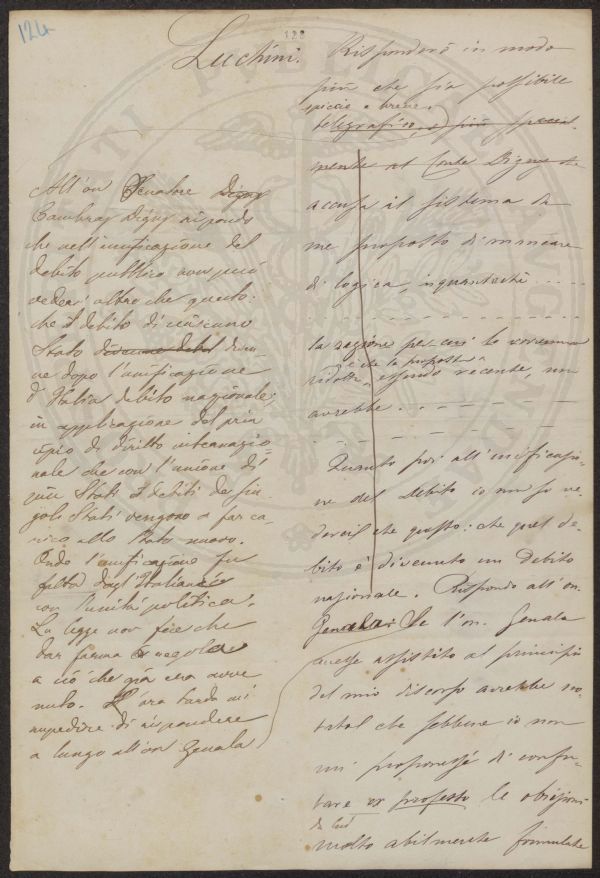 124
128
Luchini.
Risponderò in modo
più che sia possibile
spiccio e breve.
telegrafico, e più special-
mente al Conte Digny che
accusa il sistema da
me proposto di mancare
di logica, inquantochè ....
la ragione per cui lo vorremmo
è che la proposta
ridotta, essendo recente, non
avrebbe
Quanto poi all'unificazio-
ne del Debito io non so ve-
derci che questo: che quel de-
bito è divenuto un Debito
nazionale. Rispondo all'on.
Genala. Se l'on. Genala
avesse assistito al principio
del mio discorso avrebbe no-
tato che sebbene io non
mi proponessi di confu-
tare ex professo le obiezioni
da lui
molto abilmente formulate
All'on Senatore Digny
Cambray Digny risponde
che nell'unificazione del
debito pubblico non può
veder altro che questo:
che il debito di ciascuno
Stato divenne debit diven-
ne dopo l'unificazione
d'Italia debito nazionale,
in applicazione del prin
cipio di diritto internazio-
nale che con l'unione di
più Stati i debiti dei sin-
goli Stati vengono a far ca-
rico allo Stato nuovo.
Onde l'unificazione fu
fatta dagl'Italiani
con l'unità politica.
La legge non fece che
dar forma e regola
a ciò che già era avve
nuto. L'ora tarda mi
impedisce di rispondere
a lungo all'on Genala